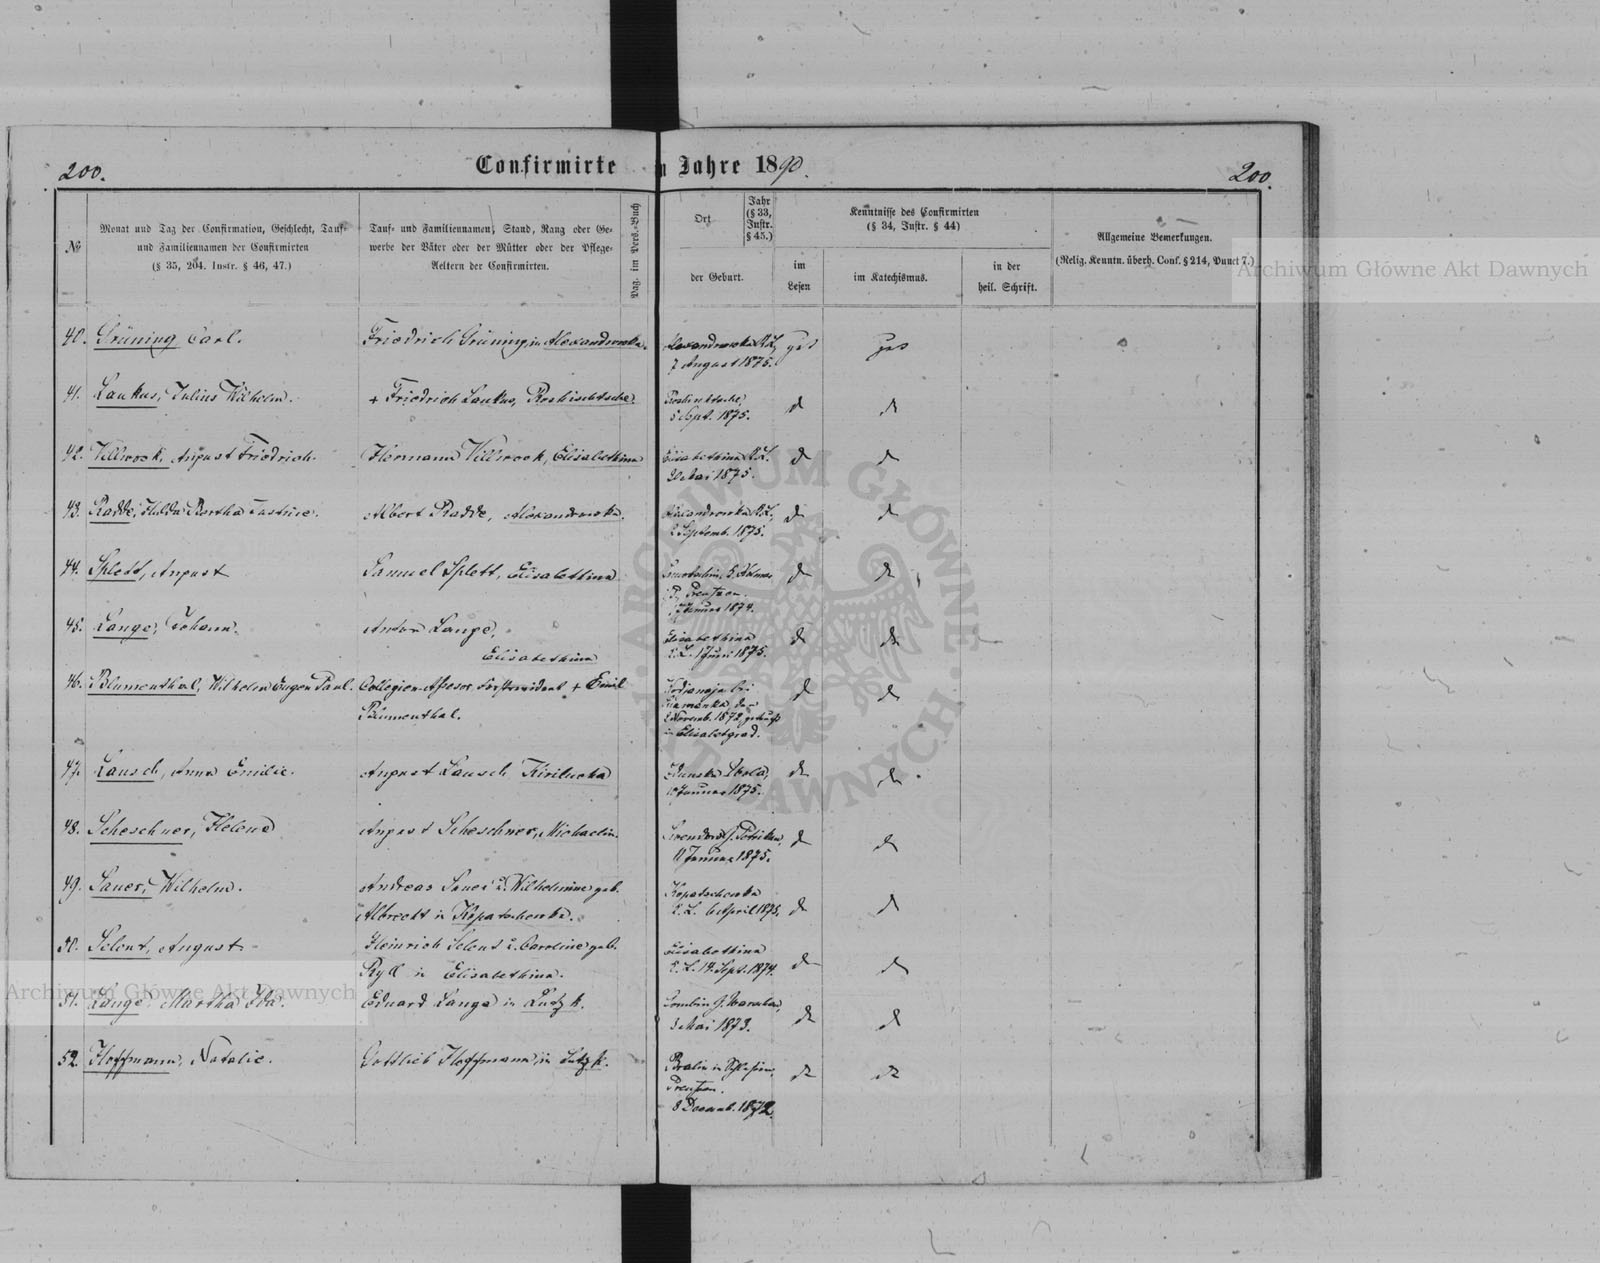 200.
Confirmirte
Jahre 1890.
200.
№
Monat und Tag der Confirmation, Geschlecht, Tauf-
und Familiennamen der Confirmirten
(§ 35, 204. Instr. § 46, 47.)
Tauf- und Familiennamen, Stand, Rang oder Ge-
werbe der Väter oder der Mütter oder der Pflege-
Aeltern der Confirmirten.
Pag. im Pers.-Buch
Ort
Jahr
(§ 33,
Instr.
§ 45.)
der Geburt.
Kenntnisse des Confirmirten
(§ 34, Instr. § 44)
im
Lesen
im Katechismus.
in der
heil. Schrift.
Allgemeine Bemerkungen.
(Relig. Kenntn. überh. Conf. § 214, Punct 7.)
Archiwum Główne Akt Dawnych
40. Grüning Carl.
Friedrich Grüning, in Alexandrowka.
7 August 1875.
41. Laukus, Julius Wilhelm.
+ Friedrich Laukus, Roshischtsche.
5 Sept. 1875.
42. Villwock, August Friedrich.
Hermann Villwock, Elisabethina
Elisabethina
20 Mai 1875.
43. Radde, Hulda Bertha Justine.
Albert Radde, Alexandrowka.
Alexandrowka
2 Septemb. 1875.
44. Splett, August
Samuel Splett, Elisabethina
Preußen.
Januar 1874.
45. Lange, Johann.
Anton Lange,
Elisabethina
Elisabethina
1 Juni 1875.
46. Blumenthal, Wilhelm Eugen Paul.
Collegien-Assessor + Emil
Blumenthal.
Novemb. 1872,
in Elisabetgrad.
47. Lausch, Anna Emilie.
August Lausch Kirilucha
Wola,
Januar 1875.
48. Scheschner, Helene
August Scheschner, Michaelin.
11 Januar 1875.
49. Sauer, Wilhelm.
Andreas Sauer u. Wilhelmine geb.
Albrecht in Kopatschowka.
Kopatschowka
6 April 1875.
50. Selent, August
Heinrich Selent u. Caroline geb.
Ryll in Elisabethina.
Elisabethina
14. Sept. 1874.
Archiwum Główne Akt Dawnych
51. Lange, Martha Ida.
Eduard Lange in Lutzk.
Gombin G. Warschau,
3 Mai 1873.
52. Hoffmann, Natalie.
Gottlieb Hoffmann, in Lutzk.
Bralin in Schlesien,
Preußen.
8 Decemb. 1872.
ARCHIWUM GŁÓWNE
AKT DAWNYCH